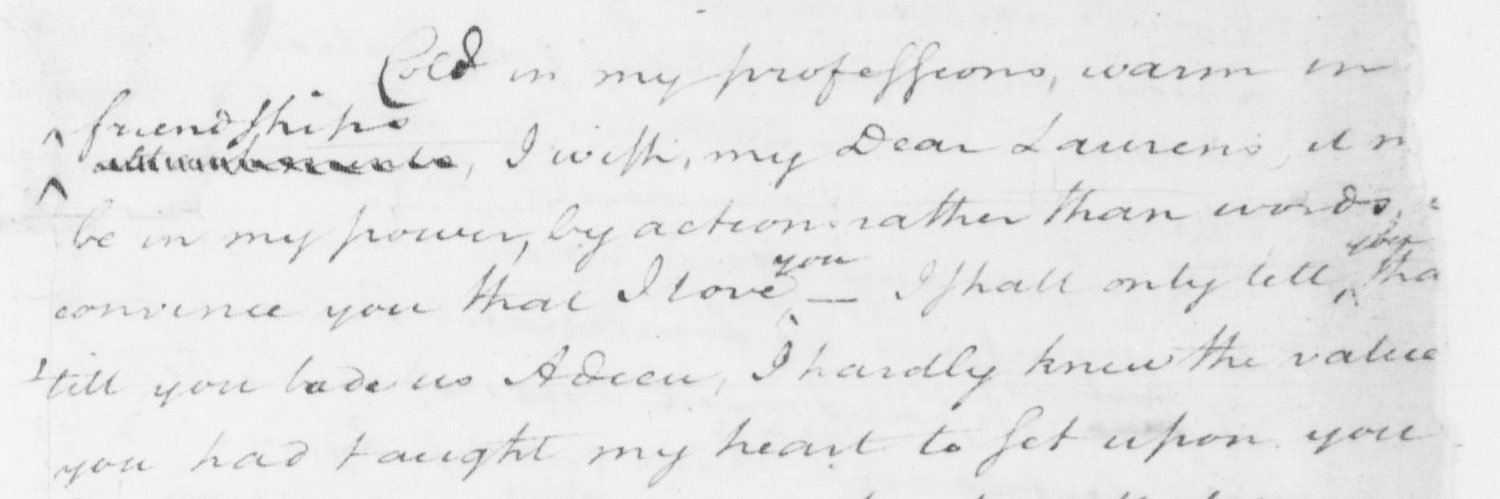 Cold in my professions, warm in
friendships
, I wish, my Dear Laurens, it m
be in my power, by action rather than words,
you
convince you that I love — I shall only tell tha
till you bade us Adieu, I hardly knew the value
you had taught my heart to set upon you